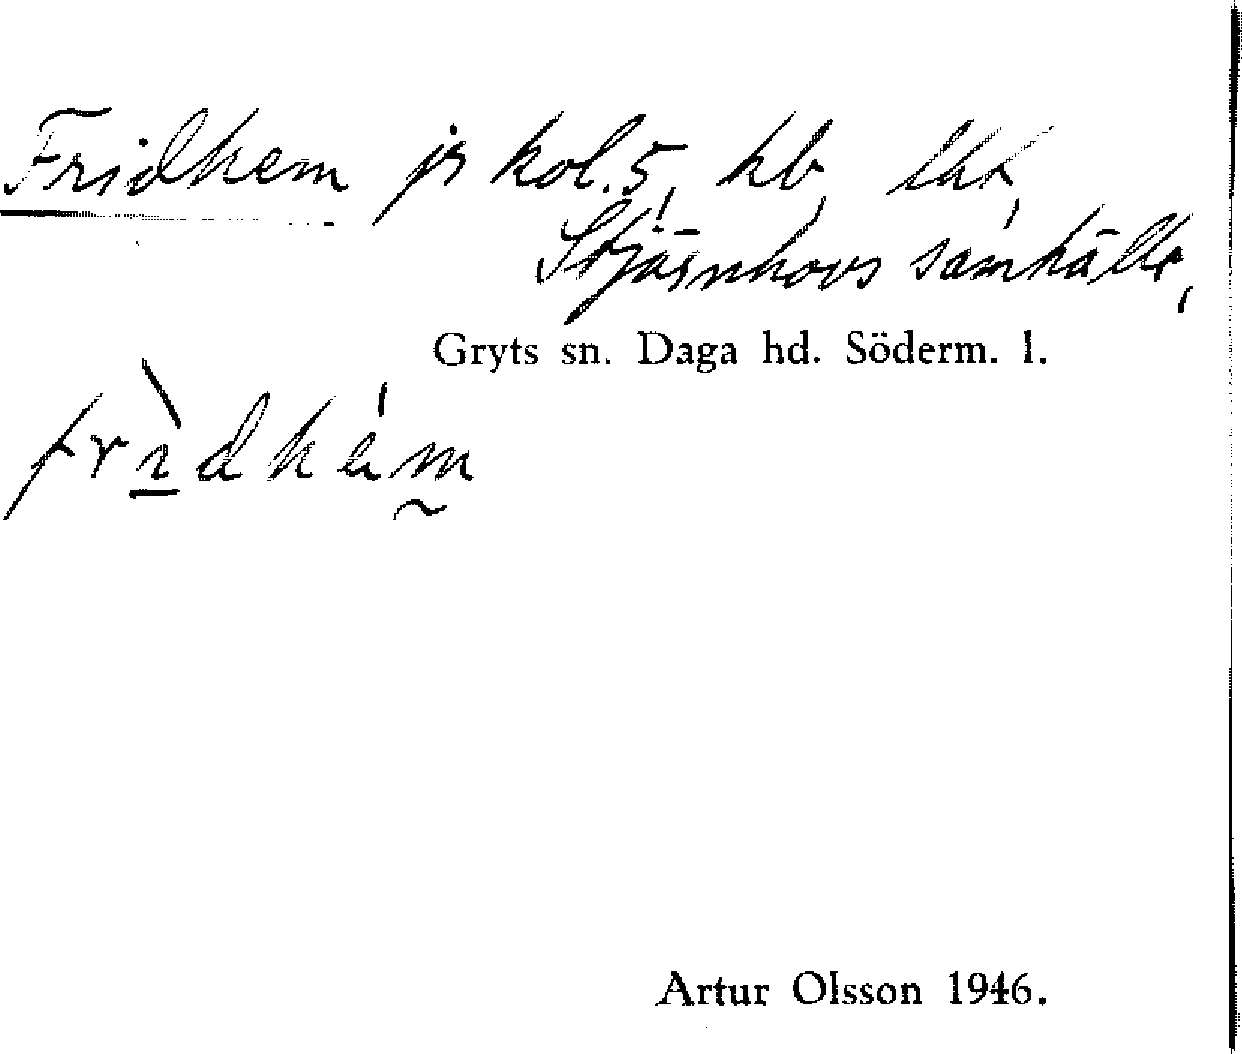 Fridhem jr kol. 5, hb, lht,
Stjärnhovs samhälle,
Gryts sn. Daga hd. Söderm. l.
frìdhém
Artur Olsson 1946.